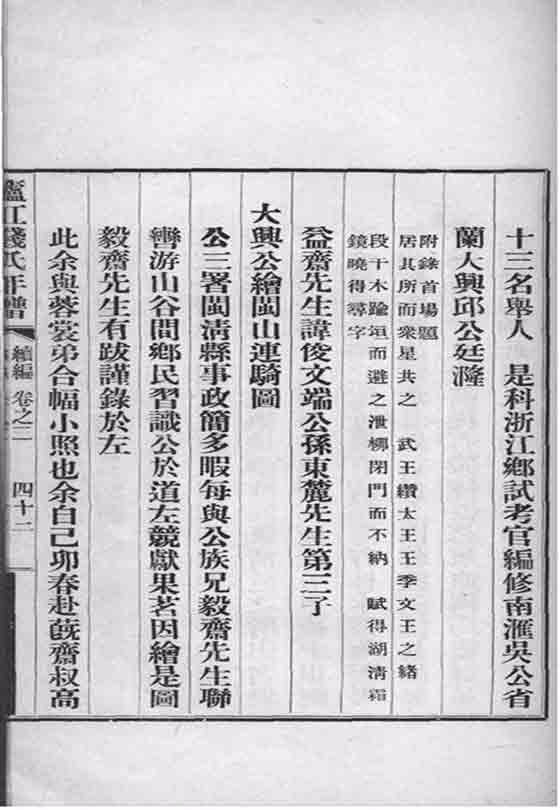 十三名舉人　是科浙江鄕試考官編修南滙吳公省
蘭大興邱公廷漋
附錄首塲題
居其所而衆星共之　武王纘太王王季文王之緒
段干木踰垣而避之泄柳閉門而不納　賦得湖淸霜
鏡曉得尋字
益齋先生諱俊文端公孫東麓先生第三子
大興公繪閩山連騎圖
公三署閩淸縣事政簡多暇每與公族兄毅齋先生聯
轡游山谷間鄕民習識公於道左競獻果茗因繪是圖
毅齋先生有跋謹錄於左
此余與蓉裳弟合幅小照也余自己卯春赴蓺齋叔高
廬江錢氏年譜　續編　卷之三　四十二